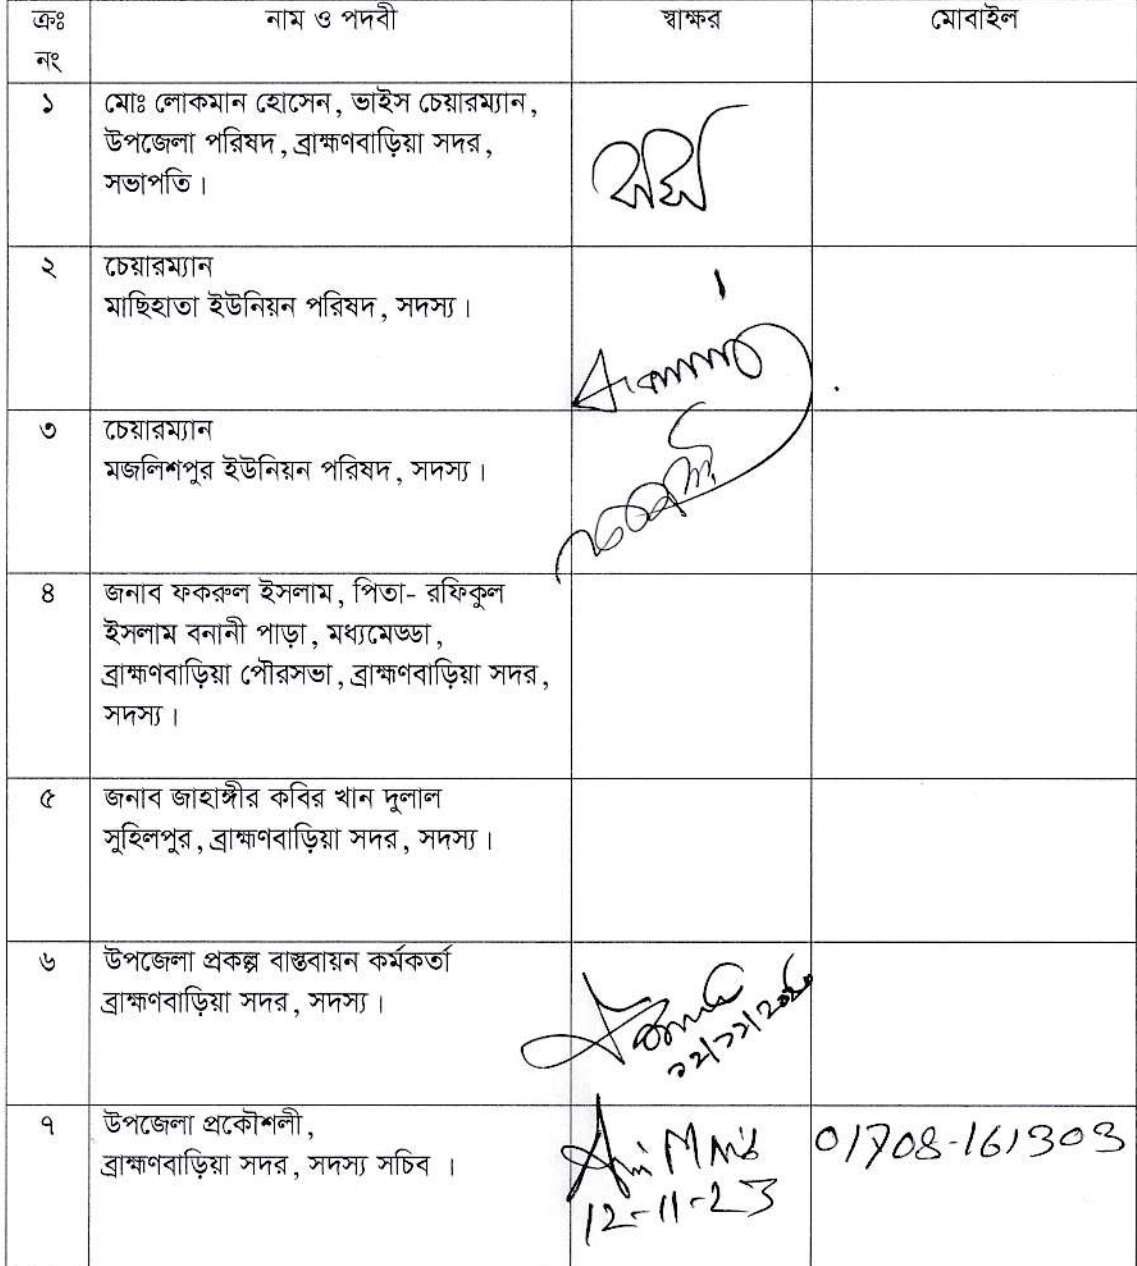 ক্রঃ নাম ও পদবী স্বাক্ষর মোবাইল
নং
১ মোঃ লোকমান হোসেন, ভাইস চেয়ারম্যান,
উপজেলা পরিষদ, ব্রাহ্মণবাড়িয়া সদর,
সভাপতি।
২ চেয়ারম্যান
মাছিহাতা ইউনিয়ন পরিষদ, সদস্য।
৩ চেয়ারম্যান
মজলিশপুর ইউনিয়ন পরিষদ, সদস্য।
৪ জনাব ফকরুল ইসলাম, পিতা- রফিকুল
ইসলাম বনানী পাড়া, মধ্যমেড্ডা,
ব্রাহ্মণবাড়িয়া পৌরসভা, ব্রাহ্মণবাড়িয়া সদর,
সদস্য।
৫ জনাব জাহাঙ্গীর কবির খান দুলাল
সুহিলপুর, ব্রাহ্মণবাড়িয়া সদর, সদস্য।
৬ উপজেলা প্রকল্প বাস্তবায়ন কর্মকর্তা
ব্রাহ্মণবাড়িয়া সদর, সদস্য।
৭ উপজেলা প্রকৌশলী, 01708-161303
ব্রাহ্মণবাড়িয়া সদর, সদস্য সচিব ।
12-11-23